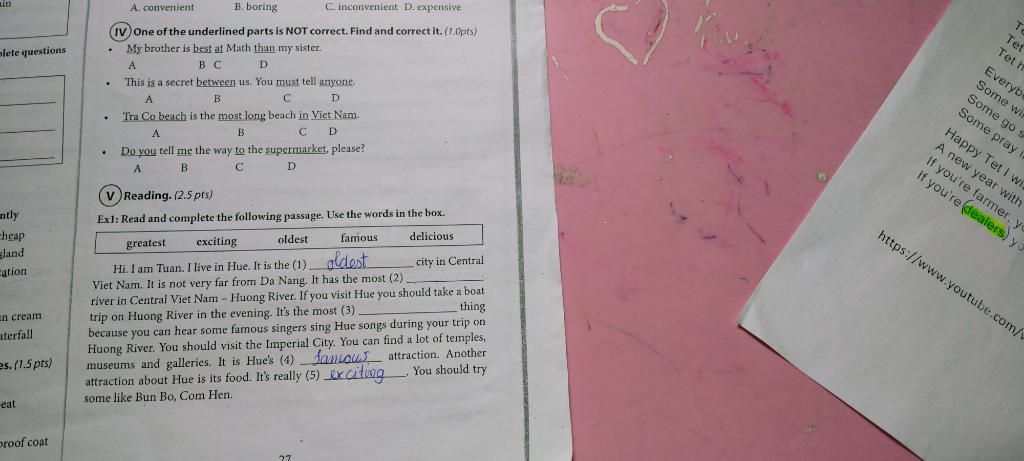 A. convenient B. boring C. inconvenient D. expensive
IV One of the underlined parts is NOT correct. Find and correct it. (1.0pts)
• My brother is best at Math than my sister.
A B C D
• This is a secret between us. You must tell anyone.
A B C D
• Tra Co beach is the most long beach in Viet Nam.
A B C D
• Do you tell me the way to the supermarket, please?
A B C D
V Reading. (2.5 pts)
Ex1: Read and complete the following passage. Use the words in the box.
greatest exciting oldest famous delicious
Hi. I am Tuan. I live in Hue. It is the (1) oldest city in Central
Viet Nam. It is not very far from Da Nang. It has the most (2)
river in Central Viet Nam – Huong River. If you visit Hue you should take a boat
trip on Huong River in the evening. It's the most (3) thing
because you can hear some famous singers sing Hue songs during your trip on
Huong River. You should visit the Imperial City. You can find a lot of temples,
museums and galleries. It is Hue's (4) famous attraction. Another
attraction about Hue is its food. It's really (5) exciting. You should try
some like Bun Bo, Com Hen.
27
plete questions
ntly
cheap
sland
cation
an cream
aterfall
es. (1.5 pts)
eat
proof coat
Tet
Tet h
Everybo
Some wi
Some go s
Some pray i
Happy Tet I wi
A new year with
If you're farmer, y
If you're (dealers) yo
https://www.youtube.com/